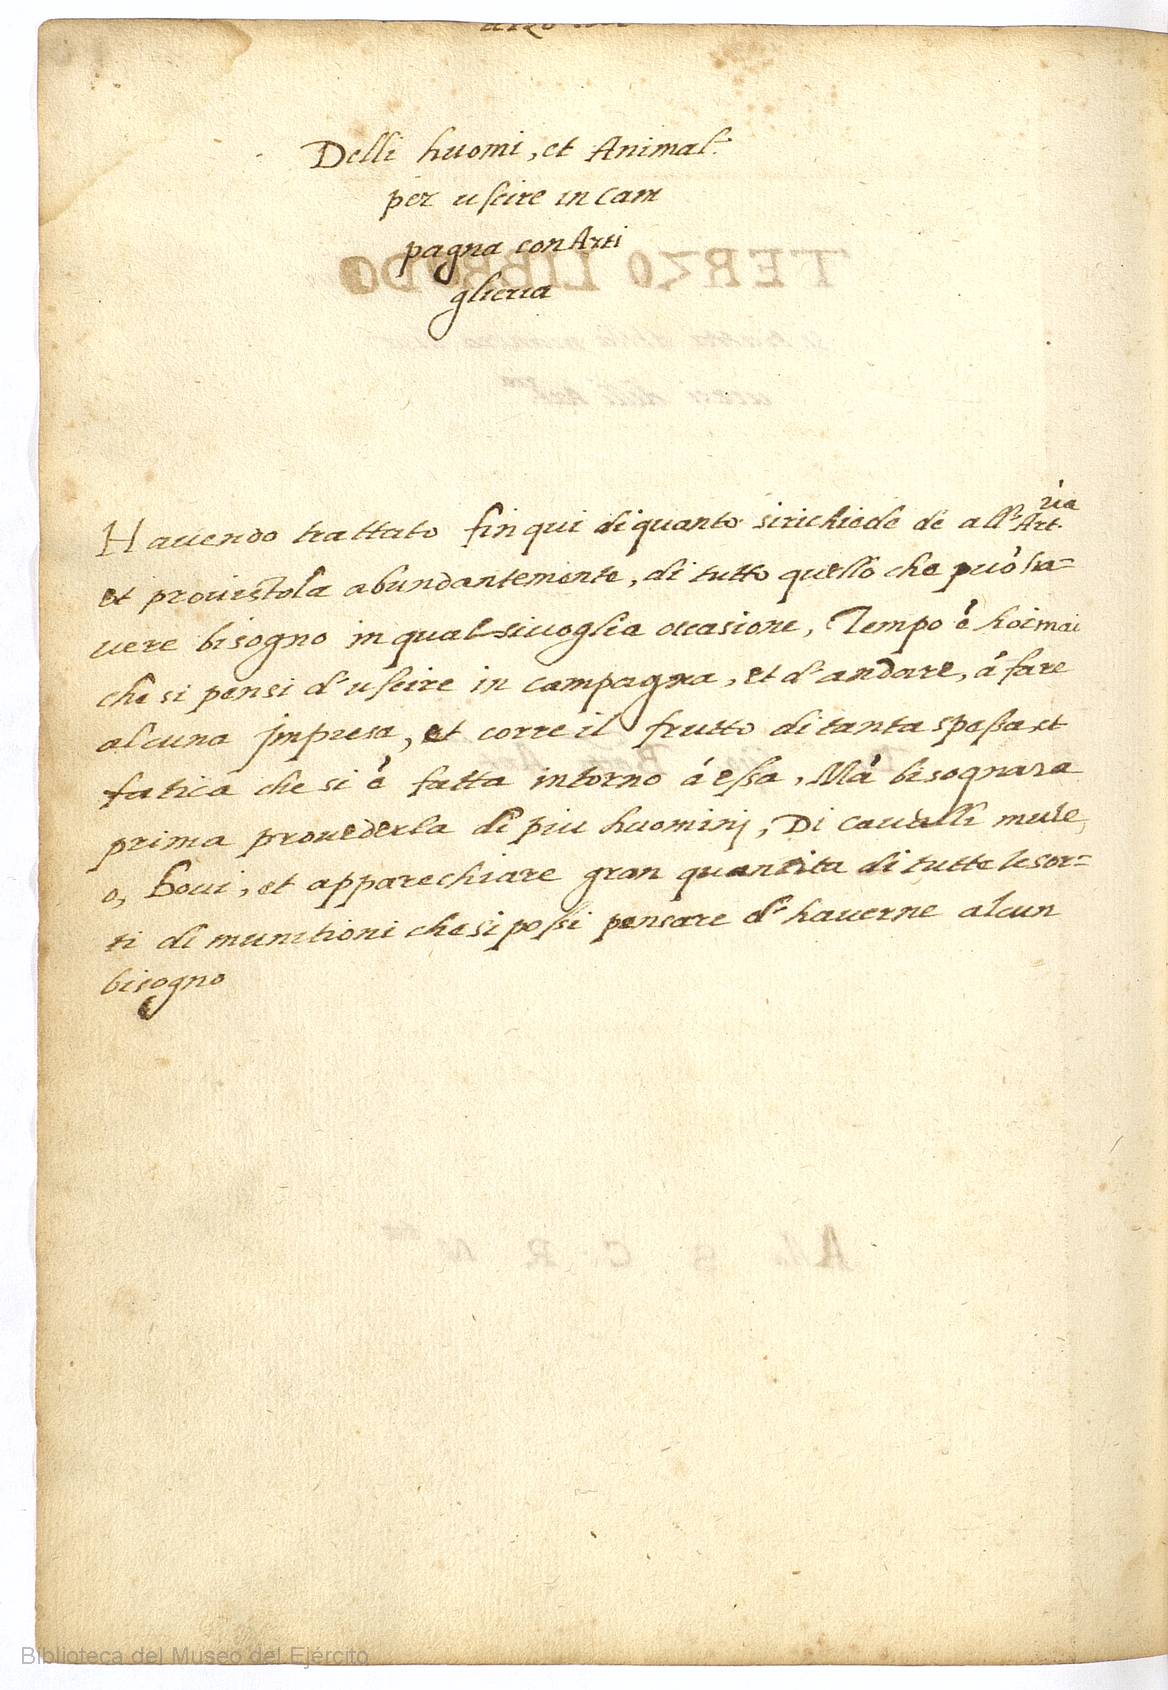 Delli huomi, et Animal.
per uscire in cam
pagna con Arti
glieria
Havendo trattato fin qui di quanto si richiede de all' Art.ria
et provistola abundantemente, di tutto quello che può ha=
vere bisogno in qual sivoglia occasione, Tempo è hoimai
che si pensi d' uscire in campagna, et d' andare, à fare
alcuna Impresa, et corre il frutto di tanta spesa et
fatica che si è fatta intorno à essa, Mà bisognara
prima provederla di piu huominj, Di cavalli mule,
o, bovi, et apparechiare gran quantita di tutte le sor=
ti di munitioni che si possi pensare d' haverne alcun
bisogno
Biblioteca del Museo del Ejército